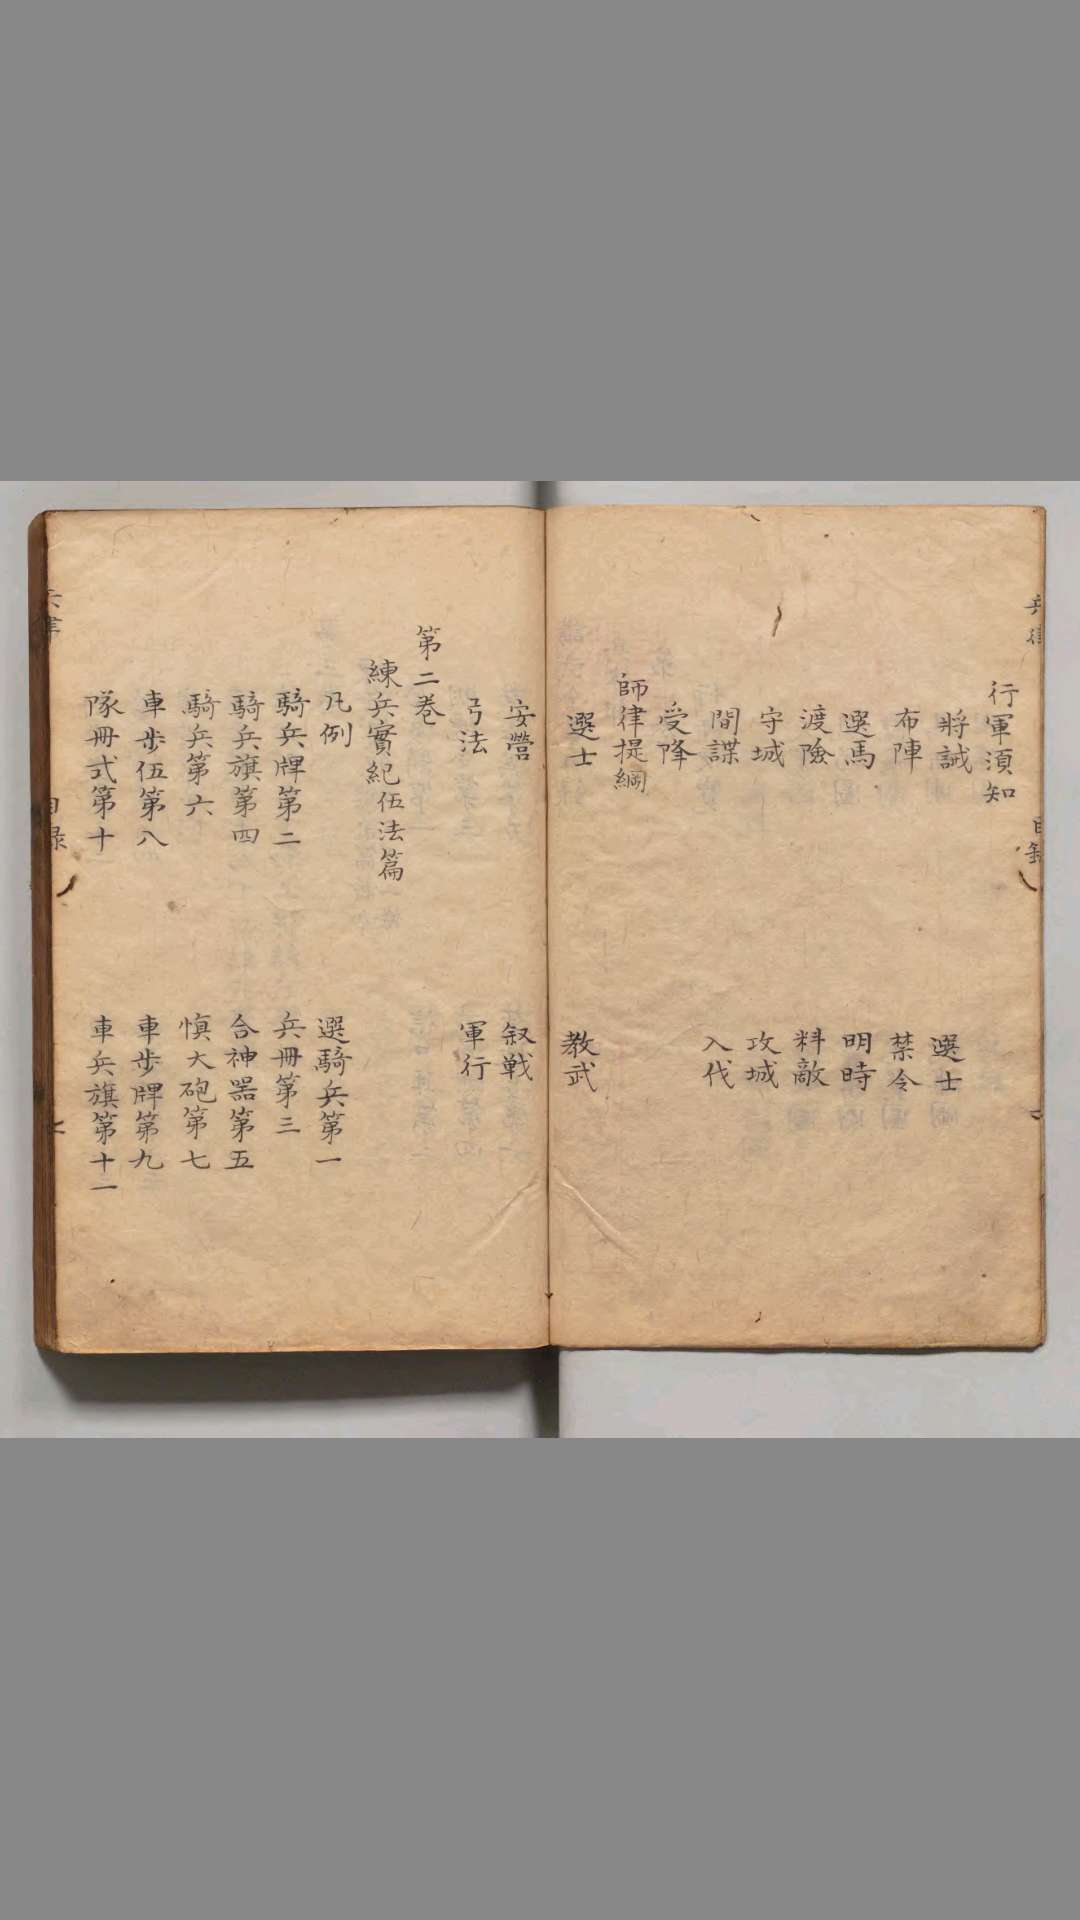 兵律 目録
行軍須知
將誡 選士
布陣 禁令
選馬 明時
渡險 料敵
守城 攻城
間諜 入伐
受降
師律提綱
選士 教武
安營 叙戦
弓法 軍行
第二巻
練兵實紀伍法篇
凡例 選騎兵第一
騎兵牌第二 兵冊第三
騎兵旗第四 合神器第五
騎兵第六 慎大砲第七
車歩伍第八 車歩牌第九
隊冊式第十 車兵旗第十一
兵律 目録